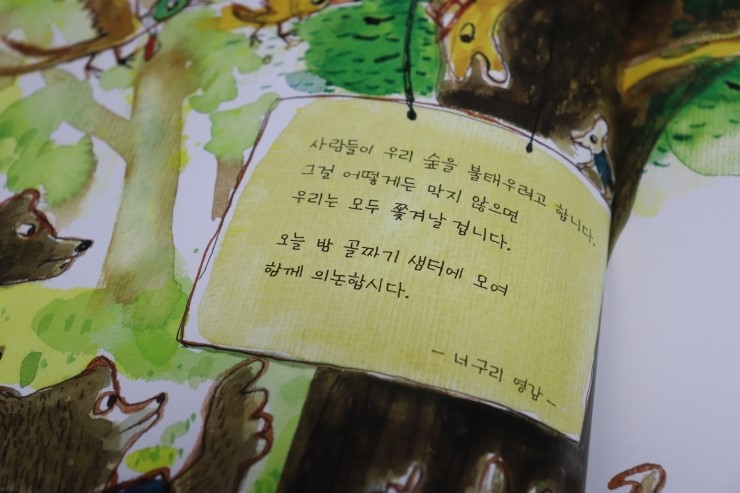 사람들이 우리 숲을 불태우려고 합니다.
그걸 어떻게든 막지 않으면
우리는 모두 쫓겨날 겁니다.
오늘 밤 골짜기 샘터에 모여
함께 의논합시다.
- 너구리 영감 -